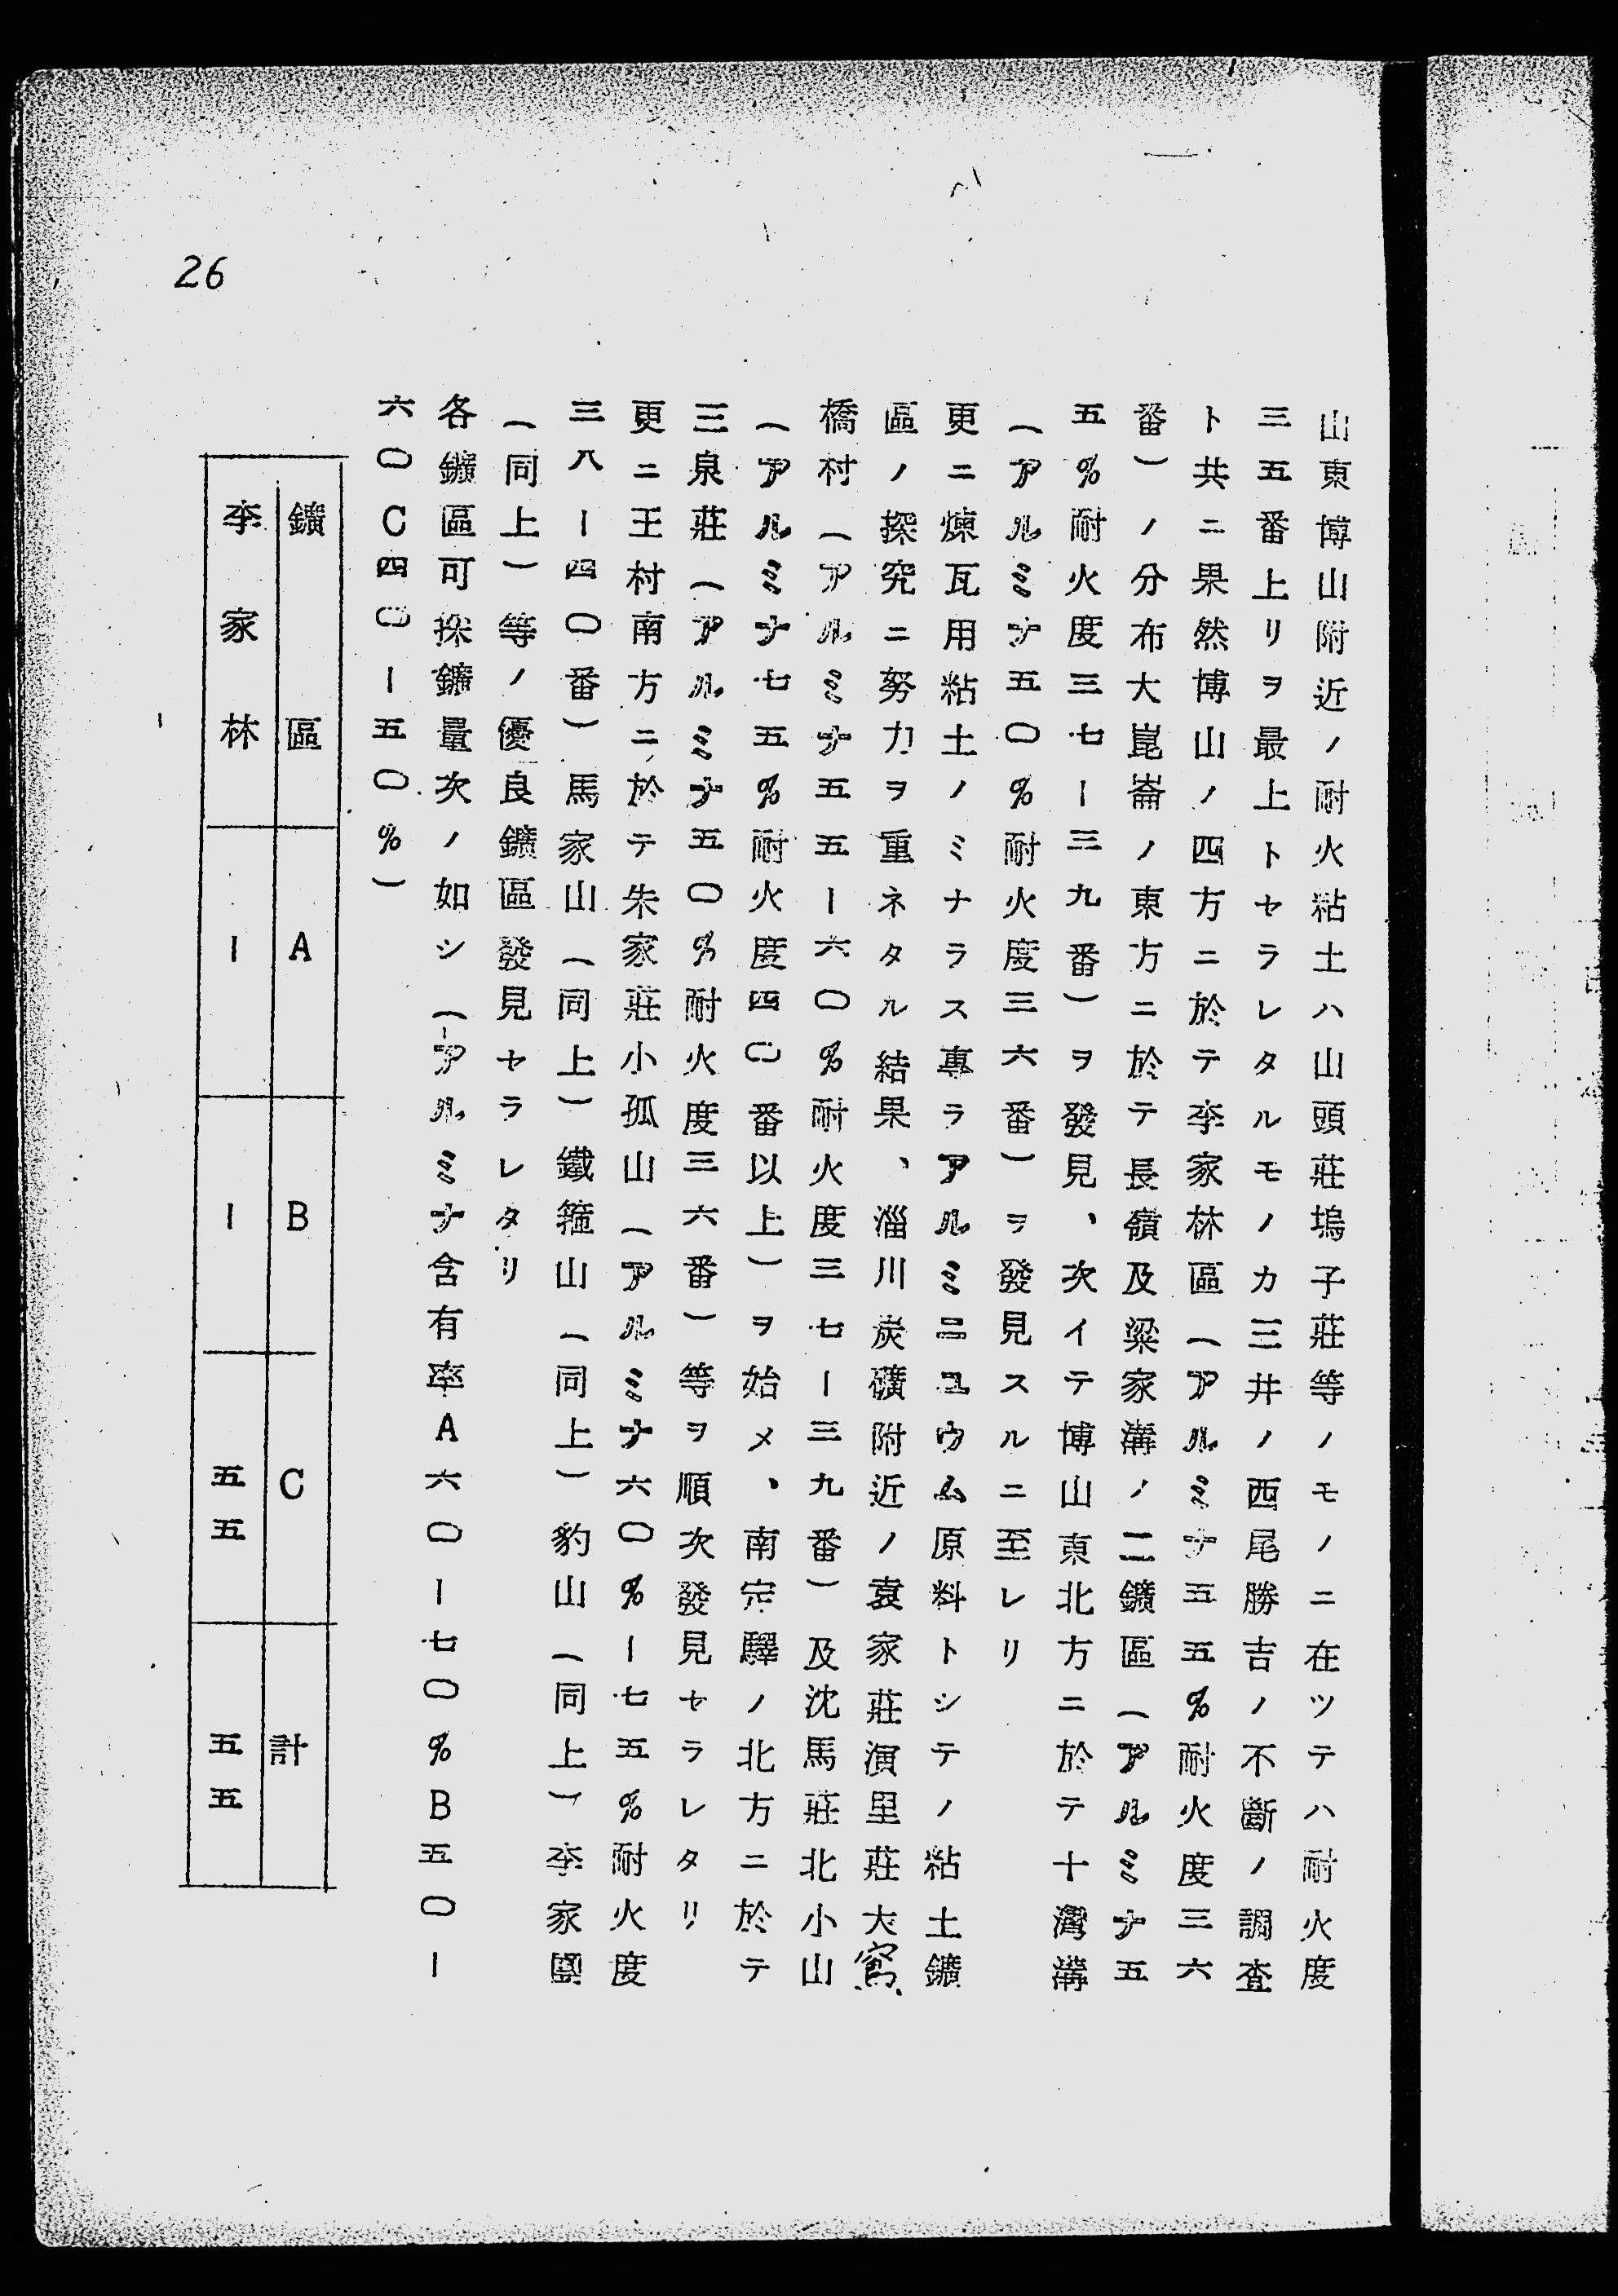 26
山東博山附近ノ耐火粘土ハ山頭莊塢子莊等ノモノニ在ツテハ耐火度
三五番上リヲ最上トセラレタルモノカ三井ノ西尾勝吉ノ不斷ノ調査
ト共ニ果然博山ノ四方ニ於テ李家林區(アルミナ五五%耐火度三六
番)ノ分布大崑崙ノ東方ニ於テ長嶺及粱家溝ノ二鑛區(アルミナ五
五%耐火度三七ー三九番)ヲ發見、次イテ博山東北方ニ於テ十灣溝
(アルミナ五〇%耐火度三六番)ヲ發見スルニ至レリ
更ニ煉瓦用粘土ノミナラス專ラアルミニユウム原料トシテノ粘土鑛
區ノ探究ニ努力ヲ重ネタル結果、淄川炭礦附近ノ袁家莊演里莊大窩
橋村(アルミナ五五ー六〇%耐火度三七ー三九番)及沈馬莊北小山
(アルミナ七五%耐火度四〇番以上)ヲ始メ、南定驛ノ北方ニ於テ
三泉莊(アルミナ五〇%耐火度三六番)等ヲ順次發見セラレタリ
更ニ王村南方ニ於テ朱家莊小孤山(アルミナ六〇%ー七五%耐火度
三八ー四〇番)馬家山(同上)鐵箍山(同上)豹山(同上)李家
(同上)等ノ優良鑛區發見セラレタリ
各鑛區可採鑛量次ノ如シ(アルミナ含有率A六〇ー七〇%B五〇ー
六〇C四〇ー五〇%)
鑛區 A B C 計
李家林 ー ー 五五 五五